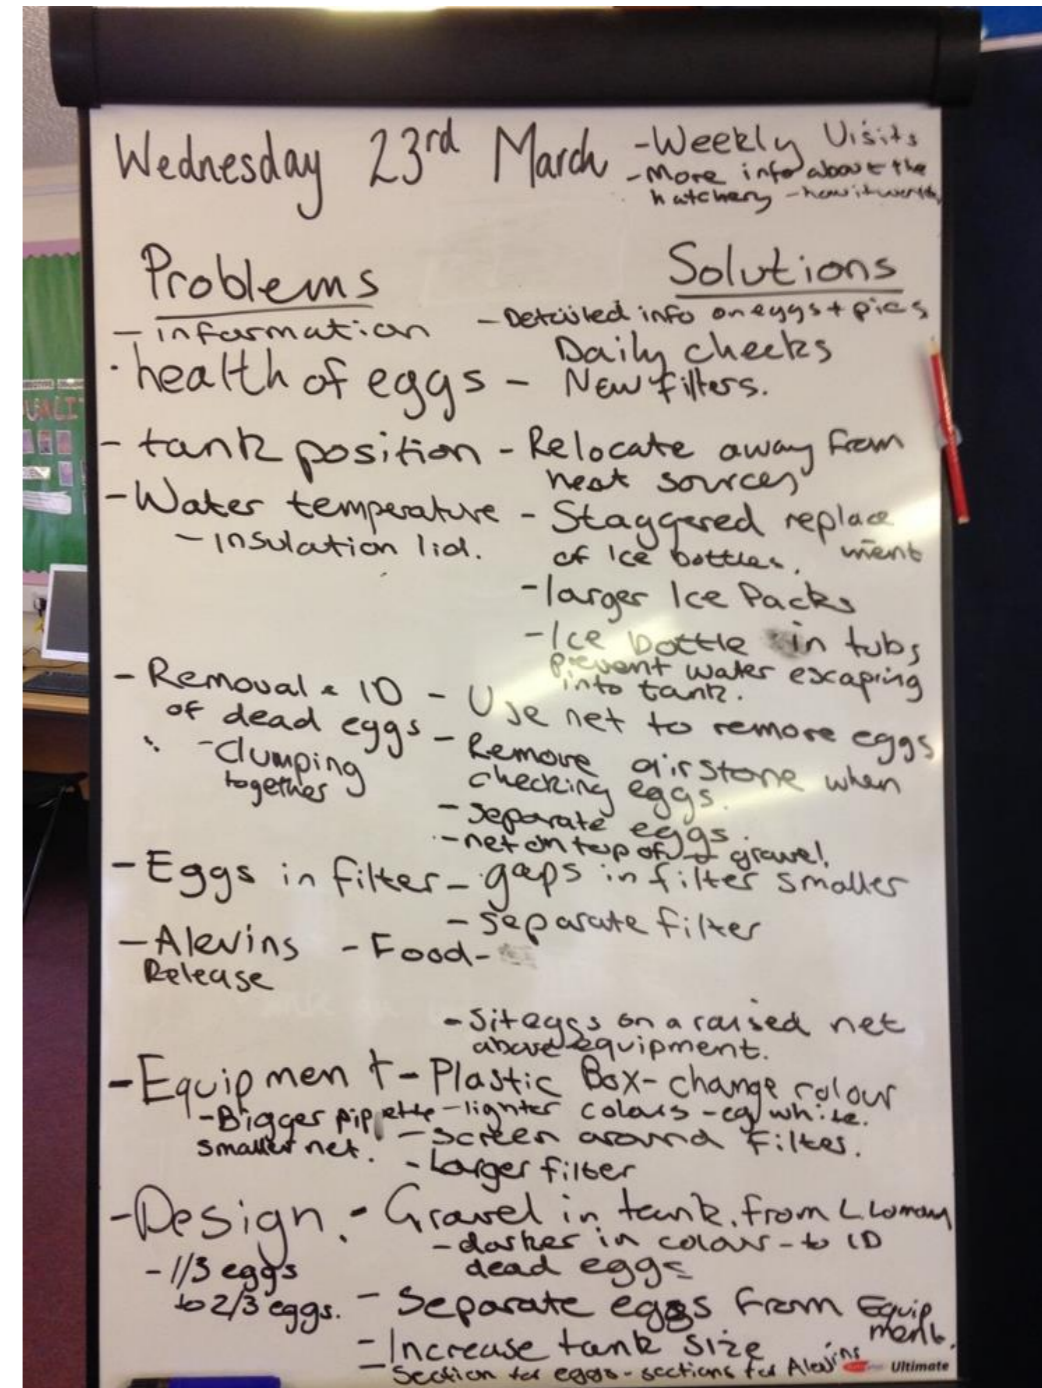 Wednesday 23rd March
- Weekly Visits
- More info about the
hatchery - how it works
Problems
Solutions
- information - Detailed info on eggs + pics
· health of eggs - Daily checks
New filters.
- tank position - Relocate away from
heat sources
- Water temperature - Staggered replace
ment
- insulation lid. of Ice bottles.
- larger Ice Packs
- Ice bottle in tubs
prevent water escaping
into tank.
- Removal & ID - Use net to remove eggs
of dead eggs - Remove airstone when
checking eggs.
- Clumping
together
- separate eggs.
- net on top of gravel.
- Eggs in filter - gaps in filter smaller
- separate filter
- Alevins - Food -
Release
- Sit eggs on a raised net
above equipment.
- Equipment - Plastic Box - change colour
- Bigger pipette - lighter colours - eg white.
smaller net. - screen around filter.
- Larger filter
- Design. - Gravel in tank. from L. Lomond
- darker in colour - to ID
dead eggs
- 1/3 eggs
to 2/3 eggs. - Separate eggs from Equip
ment.
- Increase tank size
- Section for eggs - sections for Alevins
Ultimate